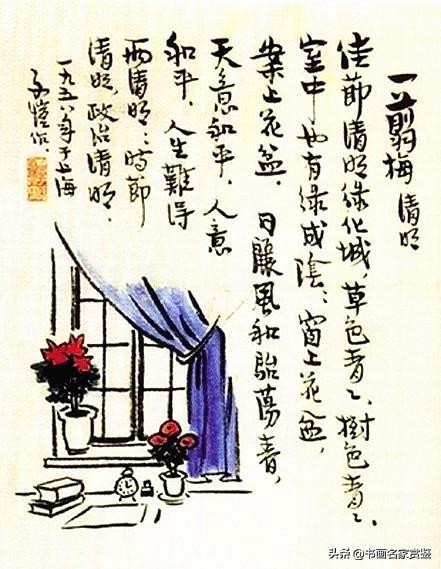 一剪梅 清明
佳節清明绿化城，草色青々、樹色青々、
室中也有绿成陰：窗上花盆，
案上花盆。日麗風和駘蕩春，
天意和平，人意
和平。人生難得
两清明：時節
清明，政治清明。
一九五八年于上海
子愷作
头条 @书画名家赏鉴